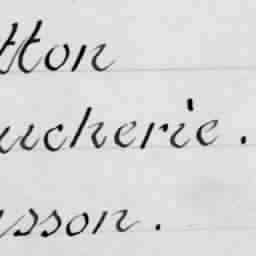 tton
ucherie.
sson.